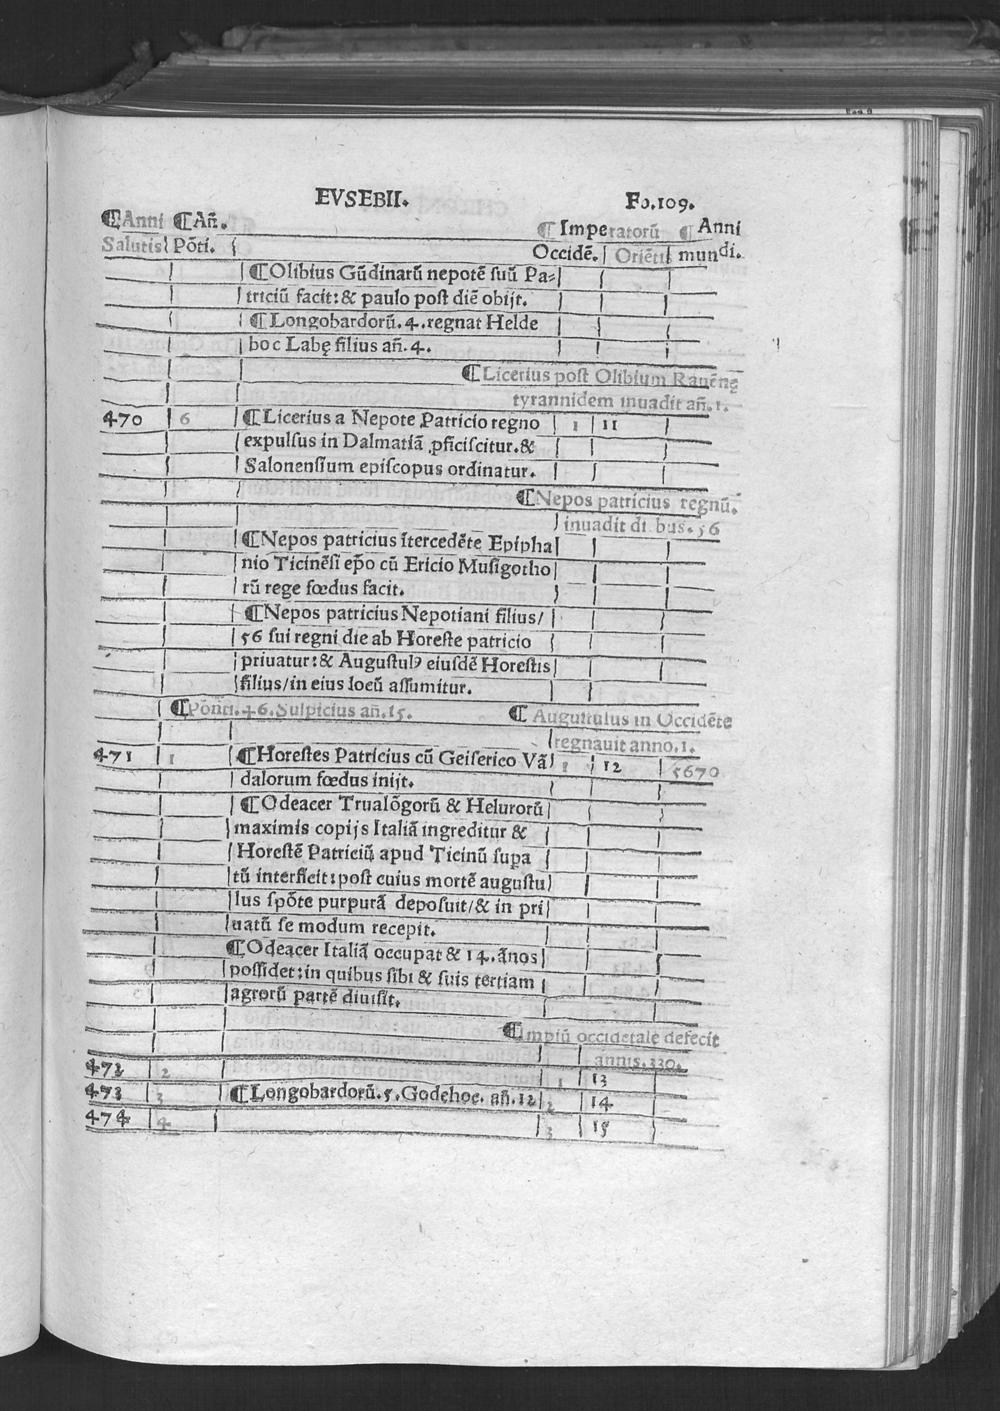 EVSEBII. Fo.109.
¶Anni ¶Añ. ¶Imperatorũ ¶Anni
Salutis Põti. Occidẽ. Oriẽti mundi.
¶Olibius Gũdinarũ nepotẽ suũ Pa⸗
triciũ facit: & paulo post diẽ obijt.
¶Longobardorũ. 4. regnat Helde
boc Labę filius añ. 4.
¶Licerius post Olibium Rauẽnę
tyrannidem inuadit añ. 1.
470 6 ¶Licerius a Nepote Patricio regno 1 11
expulsus in Dalmatiã ꝓficiscitur. &
Salonensium episcopus ordinatur.
¶Nepos patricius regnũ.
inuadit diebus. 56
¶Nepos patricius ĩtercedẽte Epipha
nio Ticinẽsi ep̃o cũ Ericio Musigotho
rũ rege fœdus facit.
¶Nepos patricius Nepotiani filius/
56 sui regni die ab Horeste patricio
priuatur: & Augustulꝰ eiusdẽ Horestis
filius/in eius locũ assumitur.
¶Põnti. 46. Sulpicius añ. 15. ¶Augustulus in Occidẽte
regnauit anno. 1.
471 1 ¶Horestes Patricius cũ Geiserico Vã 1 12 5670
dalorum fœdus inijt.
¶Odeacer Trualõgorũ & Helurorũ
maximis copijs Italiã ingreditur &
Horestẽ Patriciũ apud Ticinũ supa
tũ interficit: post cuius mortẽ augustu
lus spõte purpurã deposuit/& in pri
uatũ se modum recepit.
¶Odeacer Italiã occupat & 14. ãnos
possidet: in quibus sibi & suis tertiam
agrorũ partẽ diuisit.
¶Impiũ occidẽtale defecit
annis. 330.
472 2 1 13
473 3 ¶Longobardorũ. 5. Godehoc. añ. 12 2 14
474 4 3 15